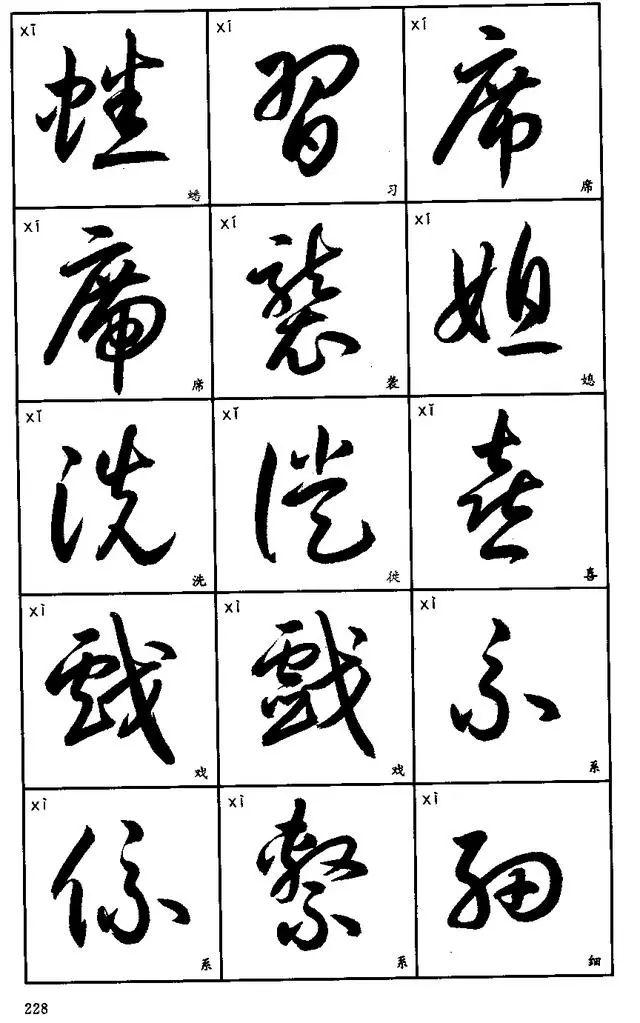 xī xí xí
蟋 習 席
蟋 习 席
xí xí xí
席 襲 媳
席 袭 媳
xǐ xǐ xǐ
洗 徙 喜
洗 徙 喜
xì xì xì
戯 戲 系
戏 戏 系
xì xì xì
係 繫 細
系 系 细
228